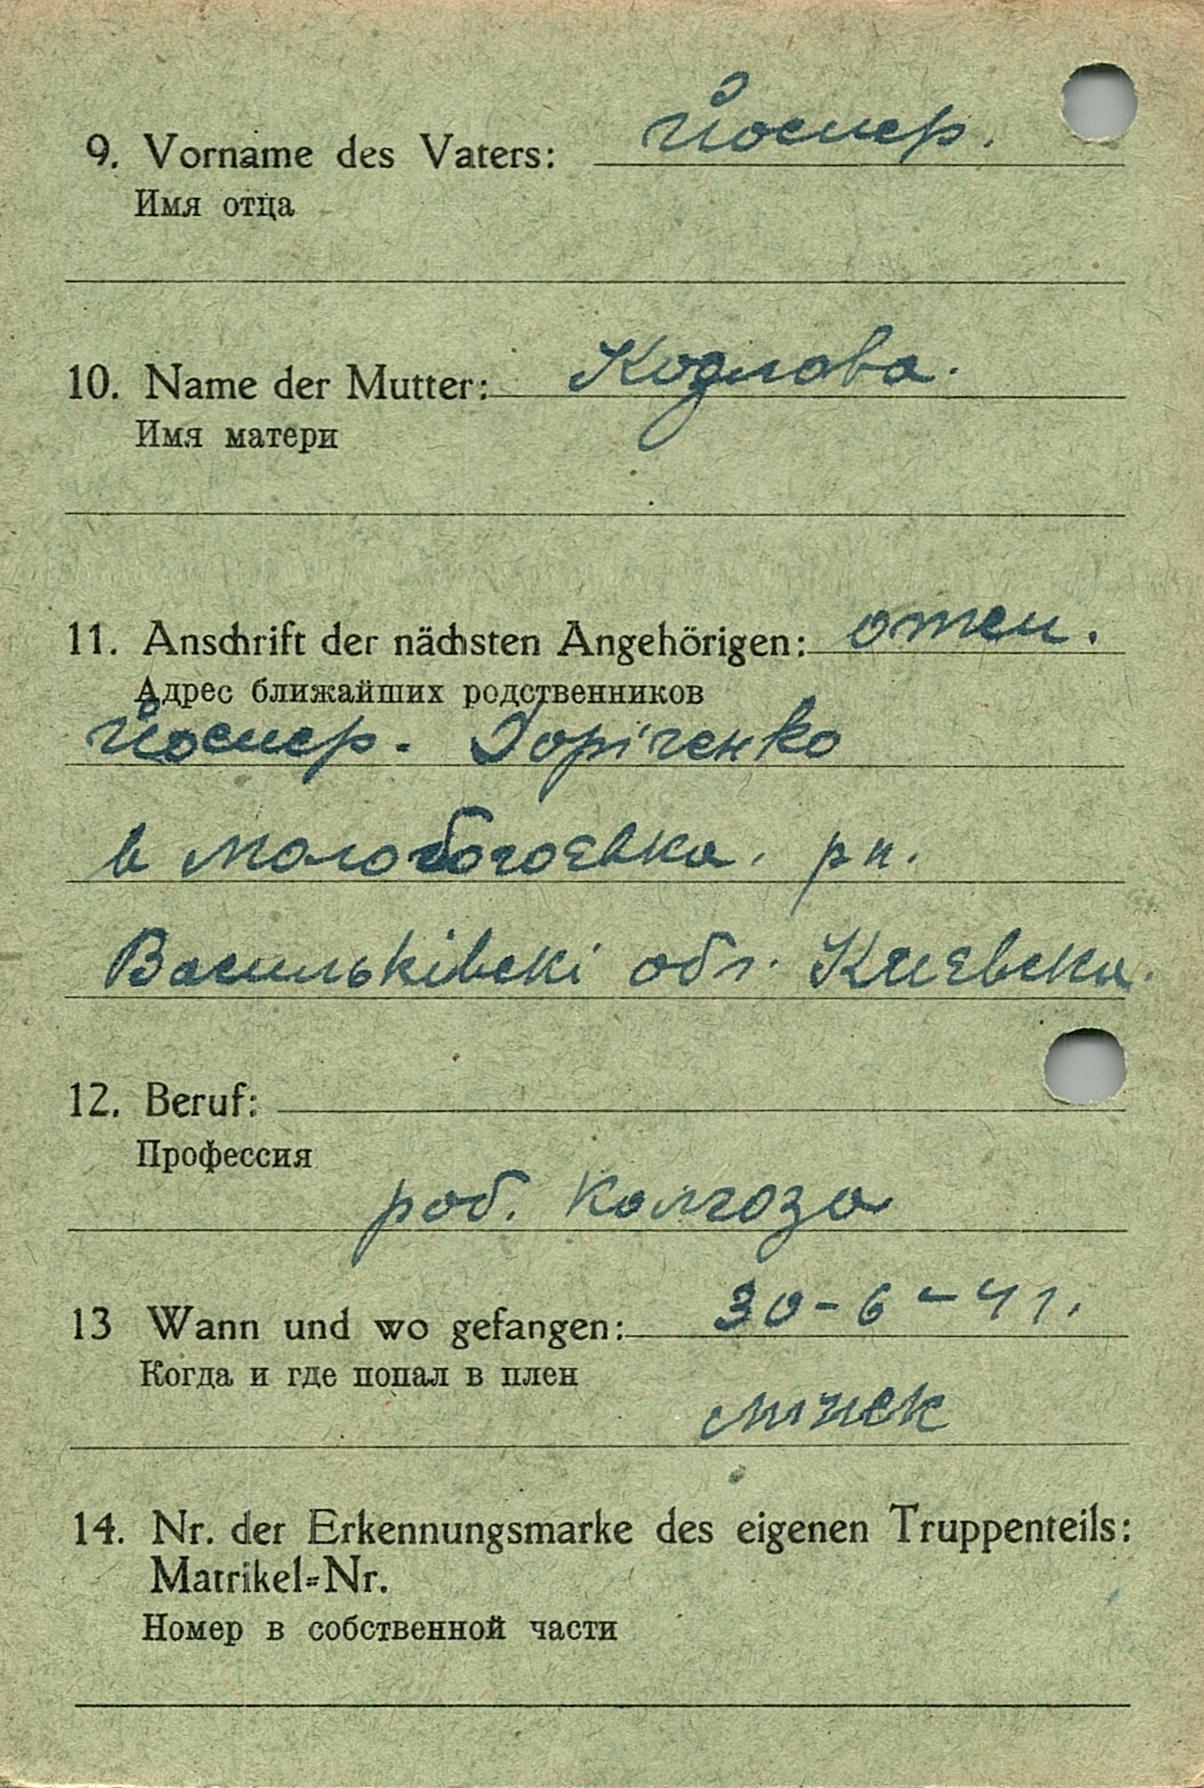 9. Vorname des Vaters: Йосиер.
Имя отца
10. Name der Mutter: Кодлова.
Имя матери
11. Anschrift der nächsten Angehörigen: отец.
Адрес ближайших родственников
Йосиер. Горіченко
в рн.
Васильківскі обл. Киевска.
12. Beruf:
Профессия
роб. колгоза
13 Wann und wo gefangen: 30-6-41.
Когда и где попал в плен
минск
14. Nr. der Erkennungsmarke des eigenen Truppenteils:
Matrikel=Nr.
Номер в собственной части